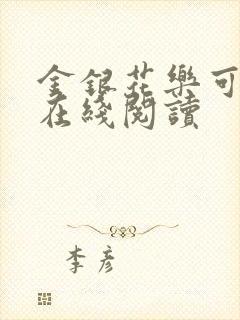 金銀花樂可
在綫閱讀
李彥